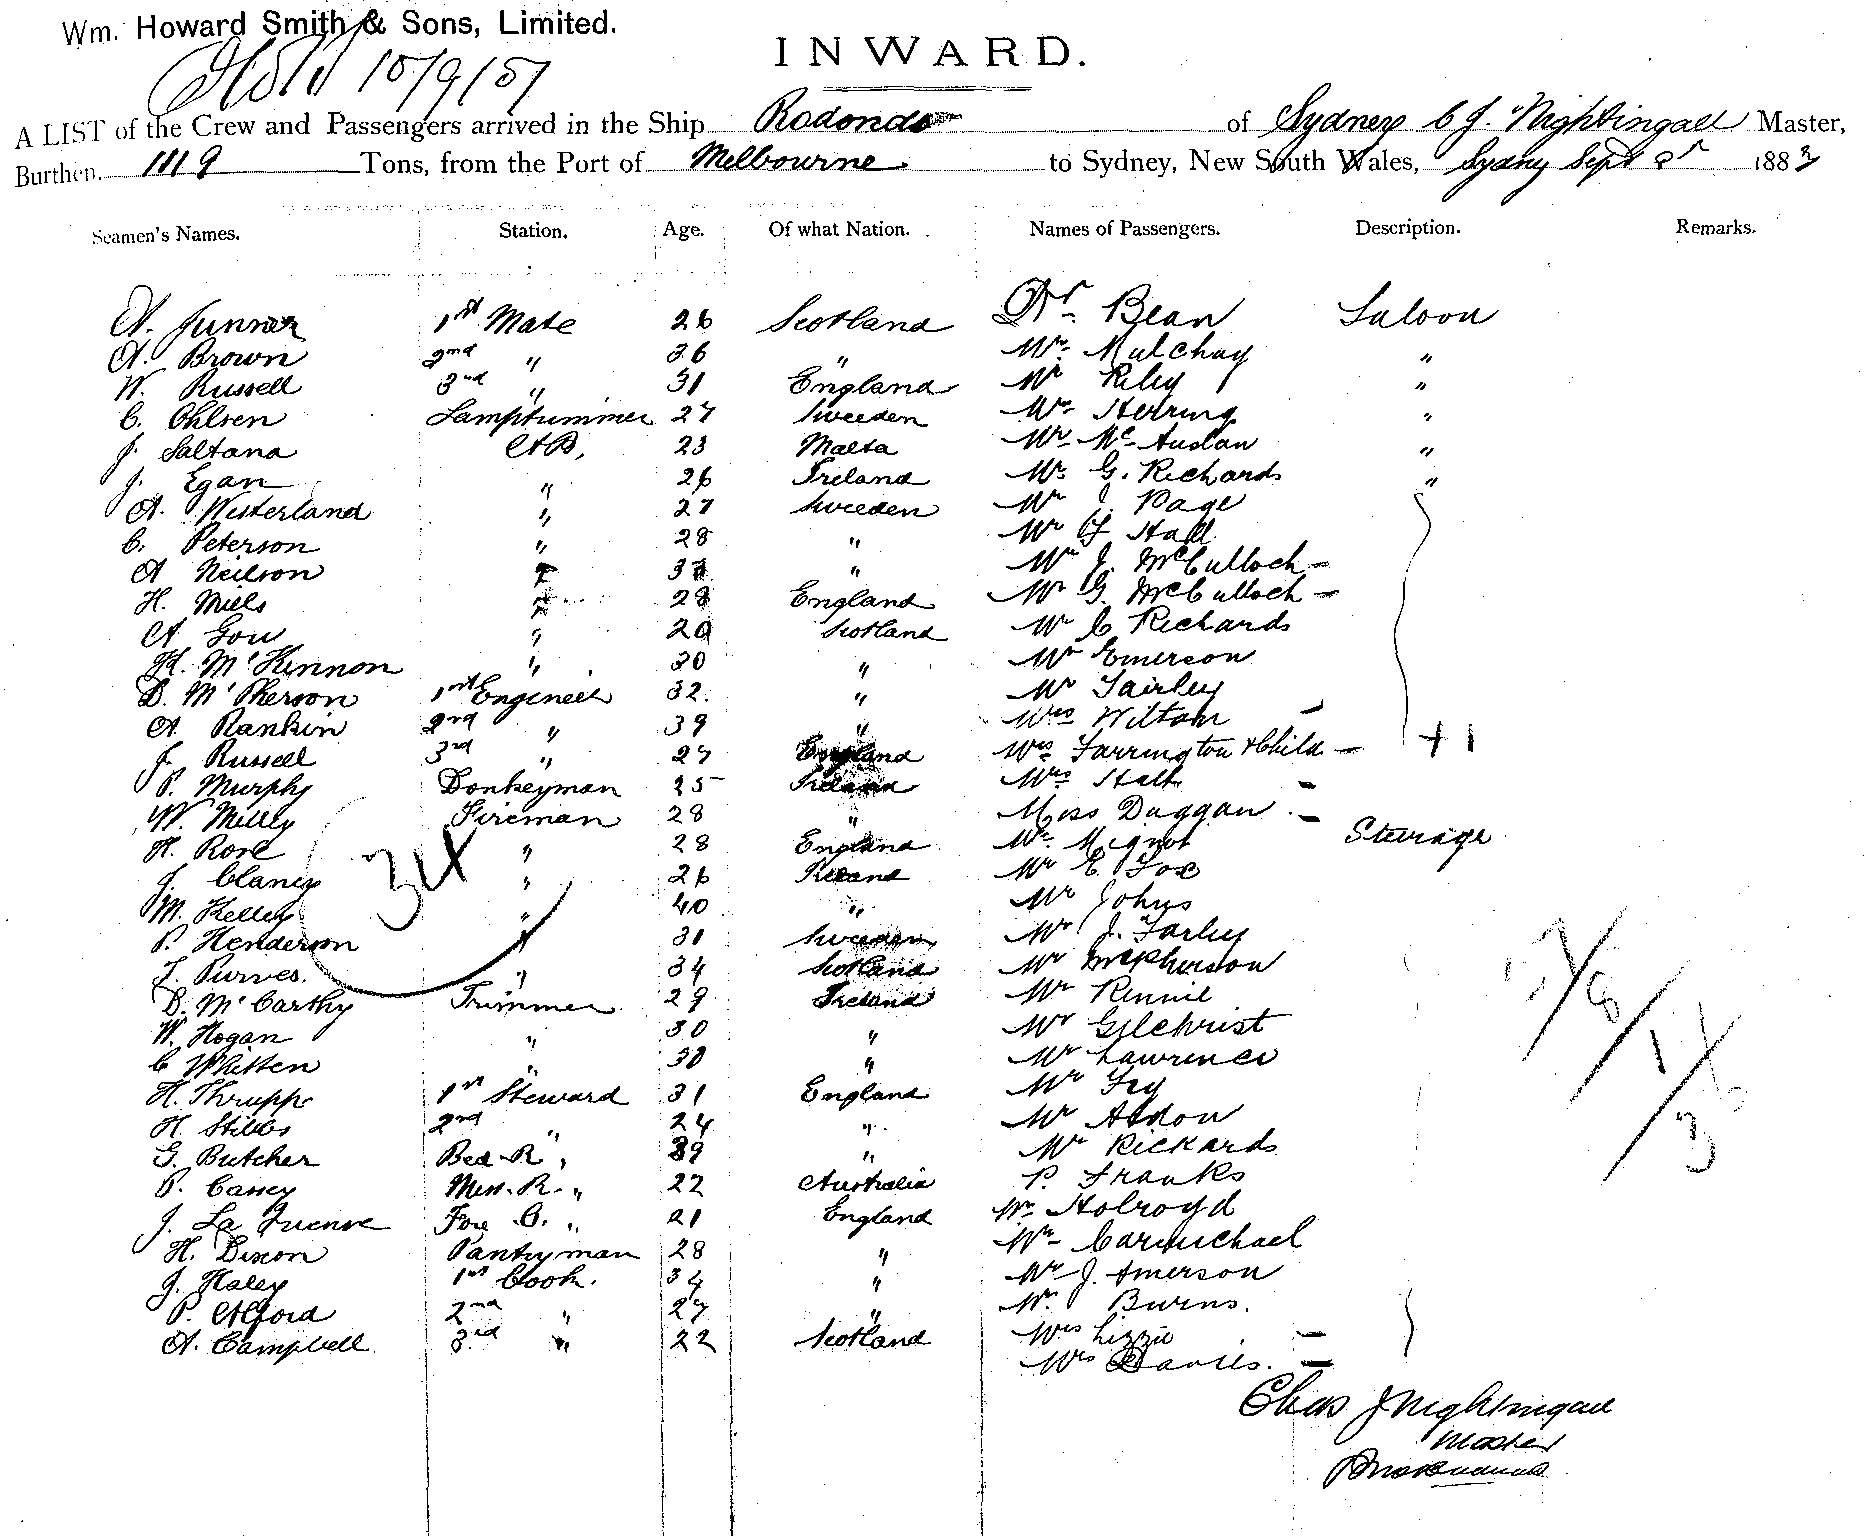 Wm. Howard Smith & Sons, Limited.
INWARD.
A LIST of the Crew and Passengers arrived in the Ship Rodondo of Sydney C J. Nightingall Master,
Burthen. 1119 Tons, from the Port of Melbourne to Sydney, New South Wales, Sydney Sept 1883
Seamen's Names. Station. Age. Of what Nation. Names of Passengers. Description. Remarks.
A. Junner 1st Mate 26 Scotland Dr. Bean Saloon
A. Brown 2nd " 36 " Mr. Mulchay "
W. Russell 3rd " 31 England Mr Riley "
C. Ohlsen Lamptrimmer 27 Sweeden Mr. Herring "
J. Saltana A.B. 23 Malta Mr. Mc Auslan "
J. Egan " 26 Ireland Mr. G. Richards "
A. Westerland " 27 Sweeden Mr J. Page
C. Peterson " 28 " Mr Hall
A Neilson " " Mr J. McCulloch -
H. Mills " 28 England Mr G. McCulloch -
A Gow " 20 Scotland Mr C Richards
H. McKinnon " 30 " Mr Emerson
D. McPherson 1st Engineer 32. " Mr Fairley
A Rankin 2nd " 39 " Mrs Wilton -
J. Russell 3rd " 27 England Mrs Farrington & Child - +1
P. Murphy Donkeyman 25 Ireland Mrs Hall -
W. Milley Fireman 28 " Miss Duggan -
H. Rose " 28 England Mr. Mignot Steerage
J. Clancy " 26 Ireland Mr E Fox
M. Kelley " 40 " Mr Johns
P. Henderson " 31 Sweeden Mr J. Farley
J. Purves. " 34 Scotland Mr McPherson
D. McCarthy Trimmer 29 Ireland Mr Rennie
W. Hogan " 30 " Mr Gilchrist
C Whitten " 30 " Mr Lawrence
H. Thrupp 1st Steward 31 England Mr Fry
H. Stibbs 2nd " 24 " Mr Aldon
G. Butcher Bed-R " 39 " Mr Rickards
P. Casey Mess. R. " 22 Australia P. Franks
J. La Fuenve Fore C. " 21 England Mr. Holroyd
H. Dixon Pantryman 28 " Mr. Carmichael
J. Haley 1st Cook. 34 " Mr J. Amerson
P. Alford 2nd " 27 " Mr. Burns.
A. Campbell 3rd " 22 Scotland Mrs Lizzie -
Mrs Davies. -
34
Chas J Nightingall
Master